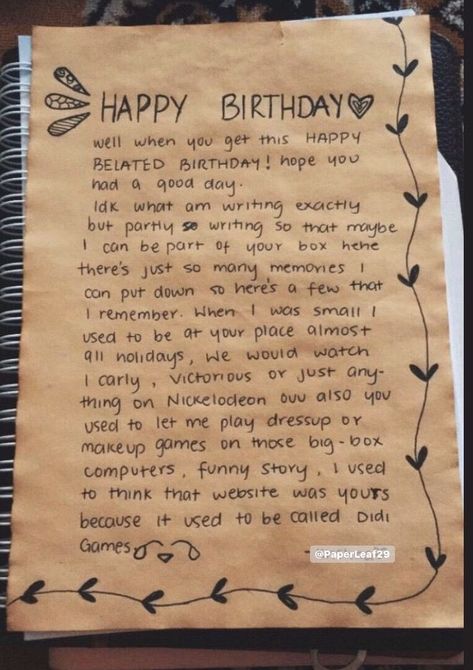 HAPPY BIRTHDAY
well when you get this HAPPY
BELATED BIRTHDAY! hope you
had a good day.
Idk what am writing exactly
but partly so writing so that maybe
I can be part of your box hehe
there's just so many memories I
can put down so here's a few that
I remember. When I was small I
used to be at your place almost
all holidays, we would watch
I carly, Victorious or just any-
thing on Nickelodeon ouu also you
used to let me play dressup or
makeup games on those big-box
computers, funny story, I used
to think that website was yours
because it used to be called Didi
Games
@PaperLeaf29